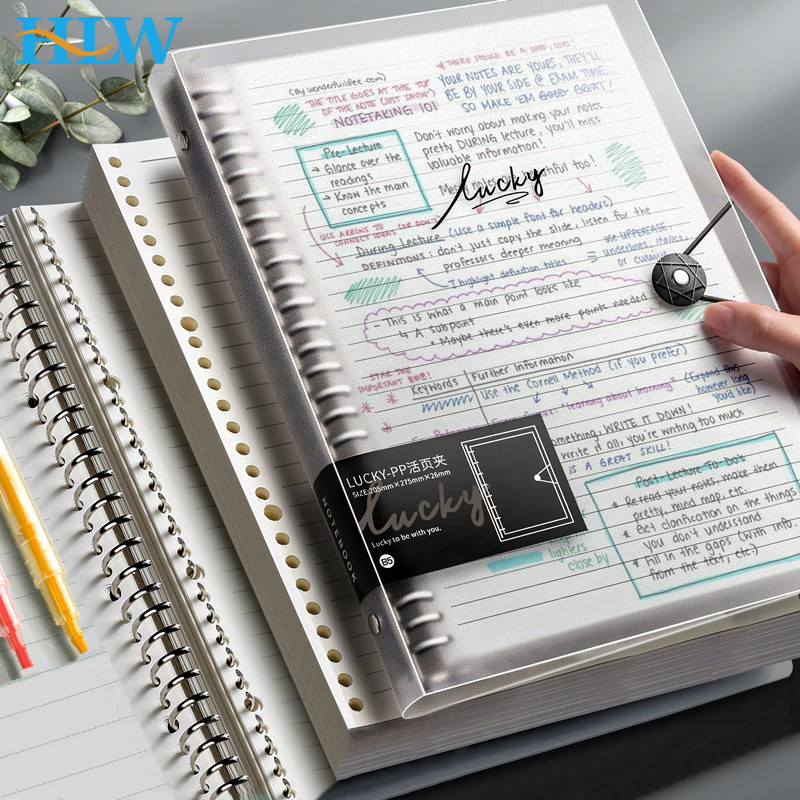 HLW
(By wonderfullifee.com)
* THERE SHOULD BE A DATE, TOO!
THE TITLE GOES AT THE TOP
OF THE NOTE (JUST SAYIN')
NOTETAKING 101
YOUR NOTES ARE YOURS, THEY'LL
BE BY YOUR SIDE @ EXAM TIME...
SO MAKE 'EM GOOD GREAT!
Pre-Lecture
→ Glance over the
readings
→ Know the main
concepts
Don't worry about making your notes
pretty DURING lecture, you'll miss
valuable information!
too!
Lucky
USE ARROWS TO
CONNECT IDEAS (OR DON'T)
During Lecture (use a simple font for headers)
DEFINITIONS: don't just copy the slide, listen for the
professors deeper meaning
↑ highlight definition titles
= use UPPERCASE,
underlines, italics,
or cursive
- This is what a main point looks like
↳ A subpoint
* Maybe there's even more points needed
STAR THE
IMPORTANT
Keywords
Further Information
Use the Cornell Method (if you prefer)
"learning about learning"
(Expand this
however long
you'd like)
WRITE IT DOWN!
write it all, you're writing too much
IS A GREAT SKILL!
LUCKY-PP活页夹
SIZE:205mm×275mm×26mm
Lucky
Lucky to be with you.
B5
NOTEBOOK
close by
Post-Lecture To Do's
* Re read your notes, make them
pretty, mind map, etc.
* Get clarification on the things
you don't understand
* Fill in the gaps (with info.
from the text, etc.)